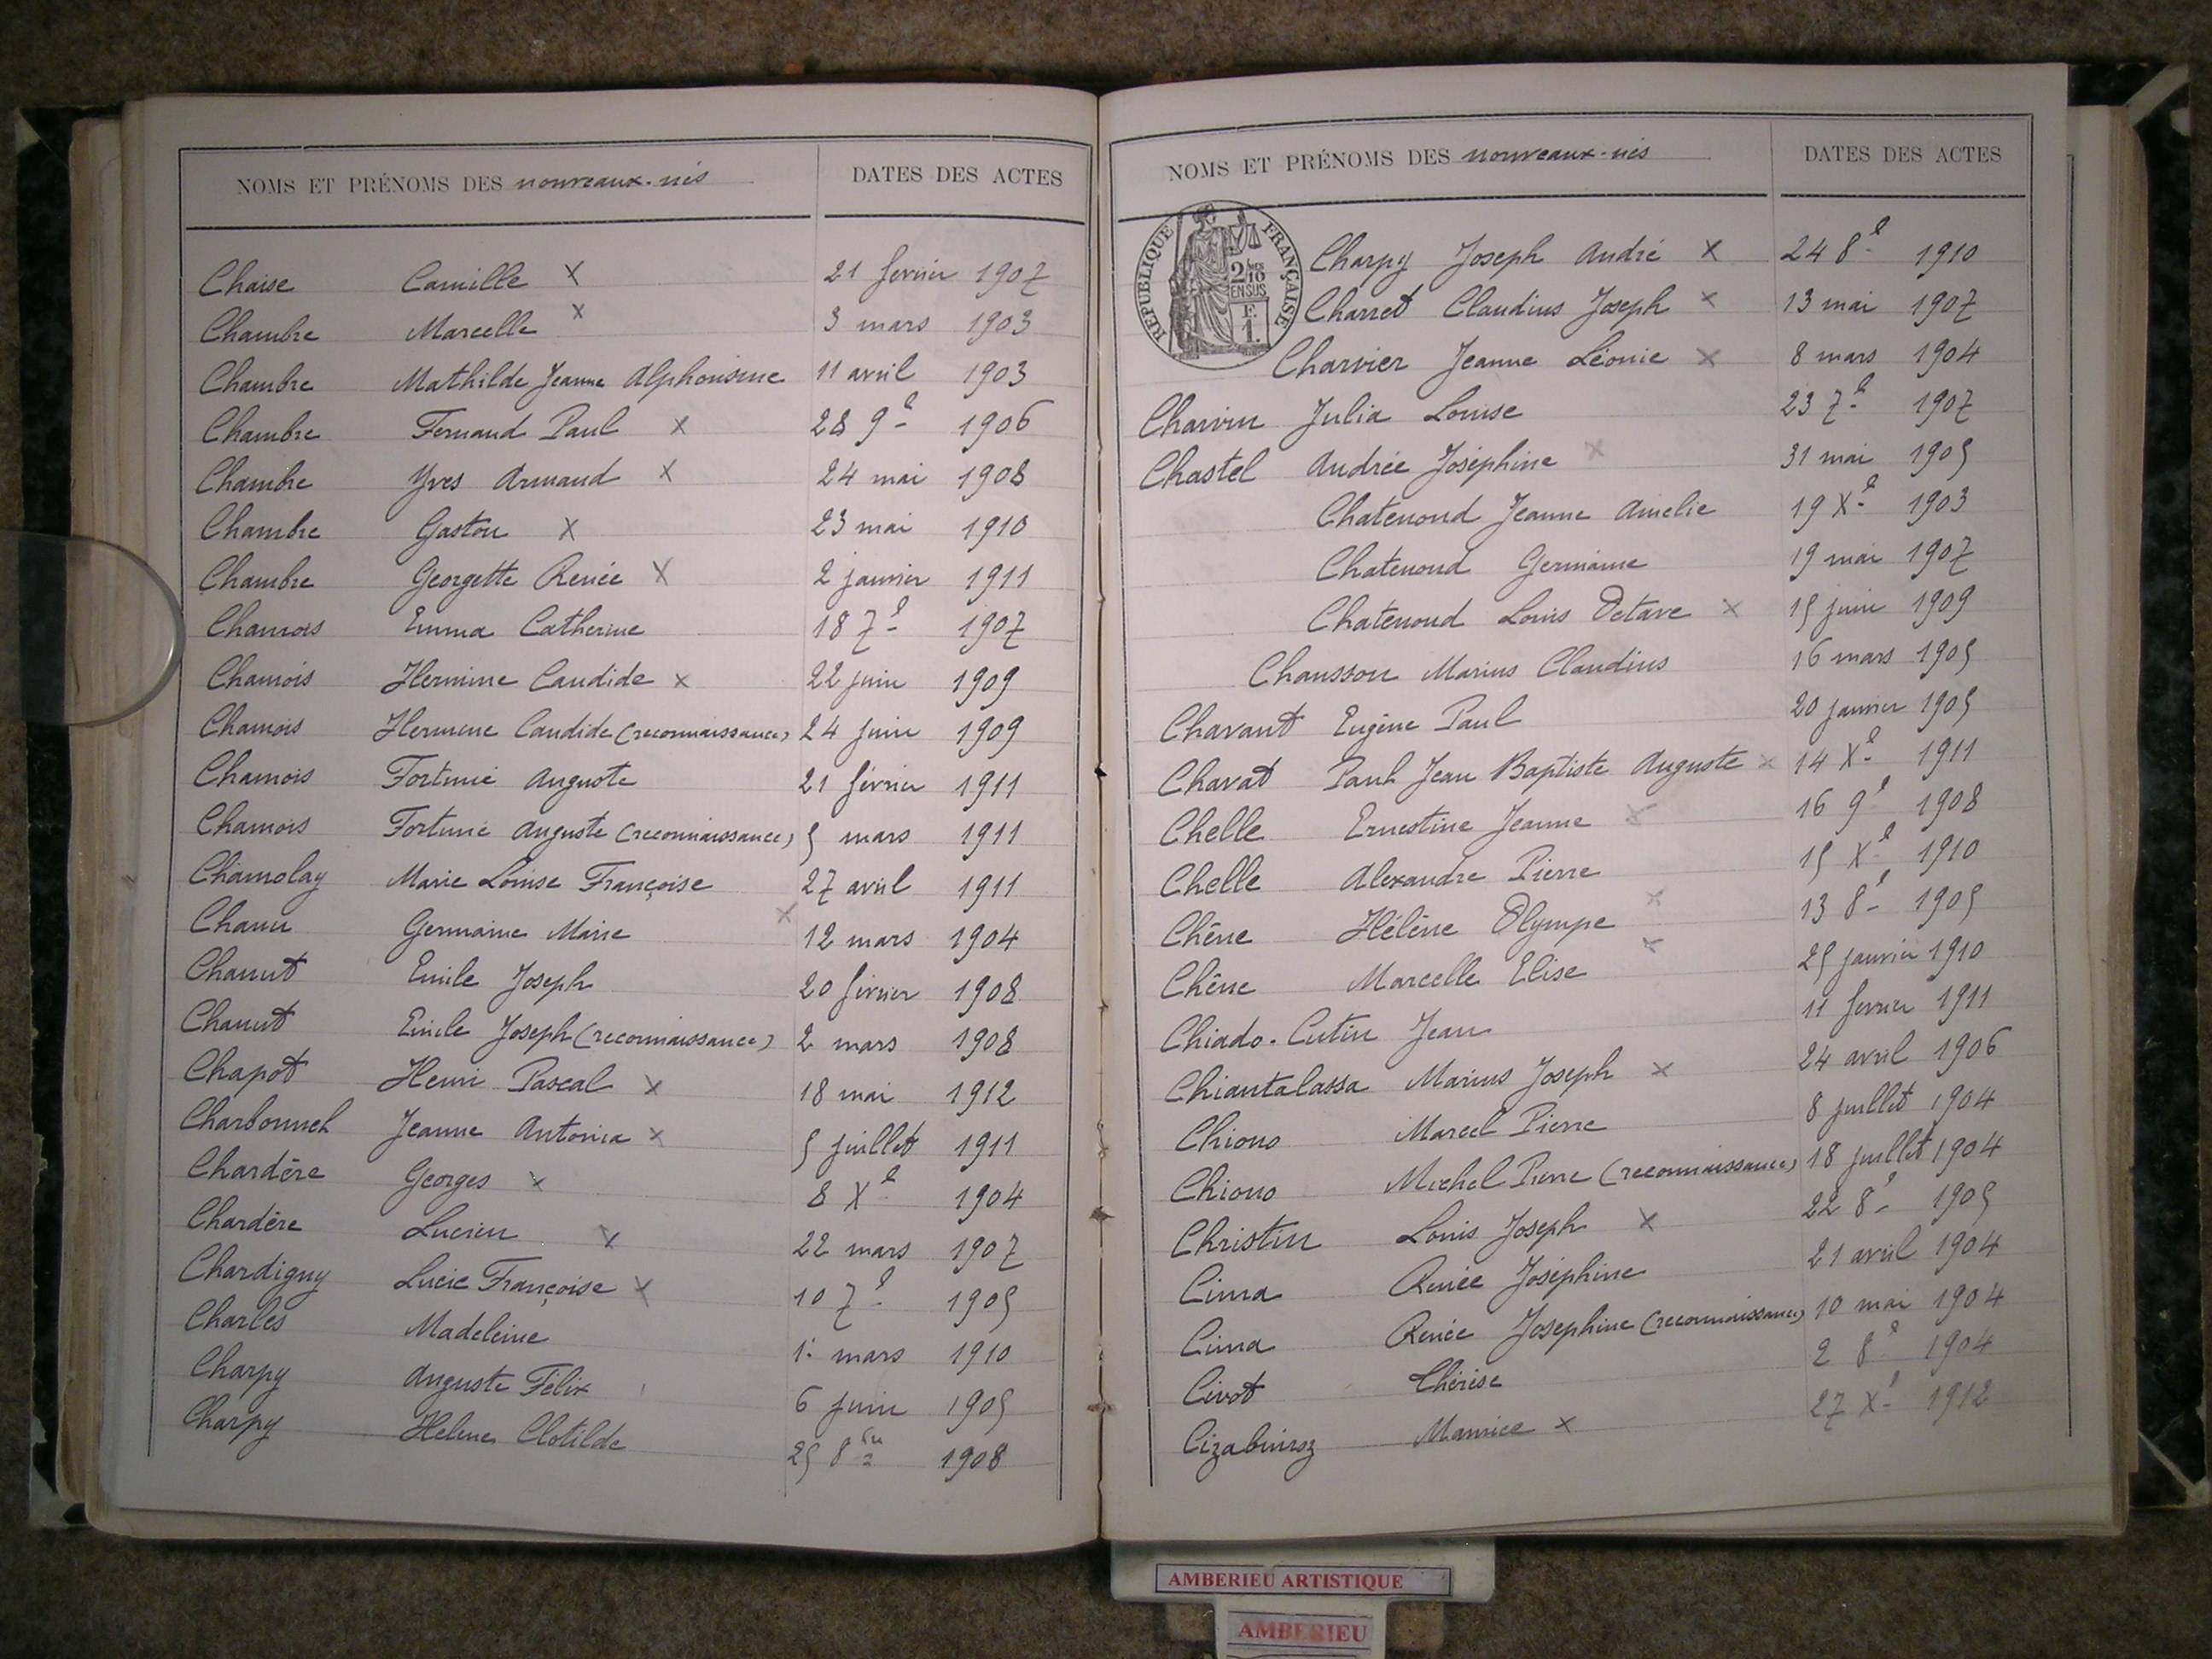 NOMS ET PRÉNOMS DES nouveaux-nés DATES DES ACTES
Chaise Camille X 21 février 1907
Chambre Marcelle X 3 mars 1903
Chambre Mathilde Jeanne Alphonsine 11 avril 1903
Chambre Fernand Paul X 28 9e 1906
Chambre Yves Armand X 24 mai 1908
Chambre Gaston X 23 mai 1910
Chambre Georgette Renée X 2 janvier 1911
Chamois Emma Catherine 18 7e 1907
Chamois Hermine Candide x 22 juin 1909
Chamois Hermine Candide (reconnaissance) 24 juin 1909
Chamois Fortuné Auguste 21 février 1911
Chamois Fortuné Auguste (reconnaissance) 5 mars 1911
Chamolay Marie Louise Françoise 27 avril 1911
Germaine Marie X 12 mars 1904
Chanut Emile Joseph 20 février 1908
Chanut Emile Joseph (reconnaissance) 2 mars 1908
Chapot Henri Pascal x 18 mai 1912
Charbonnel Jeanne Antonia x 5 juillet 1911
Chardère Georges x 8 Xe 1904
Chardère Lucien x 22 mars 1907
Chardigny Lucie Françoise x 10 7e 1905
Charles Madeleine 1er mars 1910
Charpy Auguste Félix 6 juin 1905
Charpy Helene Clotilde 25 8bre 1908
NOMS ET PRÉNOMS DES nouveaux-nés DATES DES ACTES
RÉPUBLIQUE FRANÇAISE
2/10 EN SUS
F. 1.
Charpy Joseph André x 24 8e 1910
Charret Claudius Joseph x 13 mai 1907
Charvier Jeanne Léonie x 8 mars 1904
Charvin Julia Louise 23 7e 1907
Chastel Andrée Joséphine x 31 mai 1905
Chatenoud Jeanne Amelie 19 Xe 1903
Chatenoud Germaine 19 mai 1907
Chatenoud Louis Octave x 15 juin 1909
Chausson Marius Claudius 16 mars 1905
Chavant Eugène Paul 20 janvier 1905
Chavat Paul Jean Baptiste Auguste x 14 Xe 1911
Chelle Ernestine Jeanne x 16 9e 1908
Chelle Alexandre Pierre 15 Xe 1910
Chêne Hélène Olympe x 13 8e 1905
Chêne Marcelle Elise x 25 janvier 1910
Chiado-Cutin Jean 11 fevrier 1911
Chiantalassa Marius Joseph x 24 avril 1906
Chiono Marcel Pierre 8 juillet 1904
Chiono Michel Pierre (reconnaissance) 18 juillet 1904
Christin Louis Joseph x 22 8e 1905
Cima Renée Joséphine 21 avril 1904
Cima Renée Josephine (reconnaissance) 10 mai 1904
Civot Thérèse 2 8e 1904
Maurice x 27 Xe 1912
AMBERIEU ARTISTIQUE
AMBERIEU